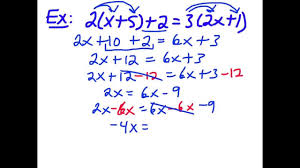 Ex: 2(x+5)+2=3(2x+1)
2x+10+2=6x+3
2x+12=6x+3
2x+12-12=6x+3-12
2x=6x-9
2x-6x=6x-6x-9
-4x=